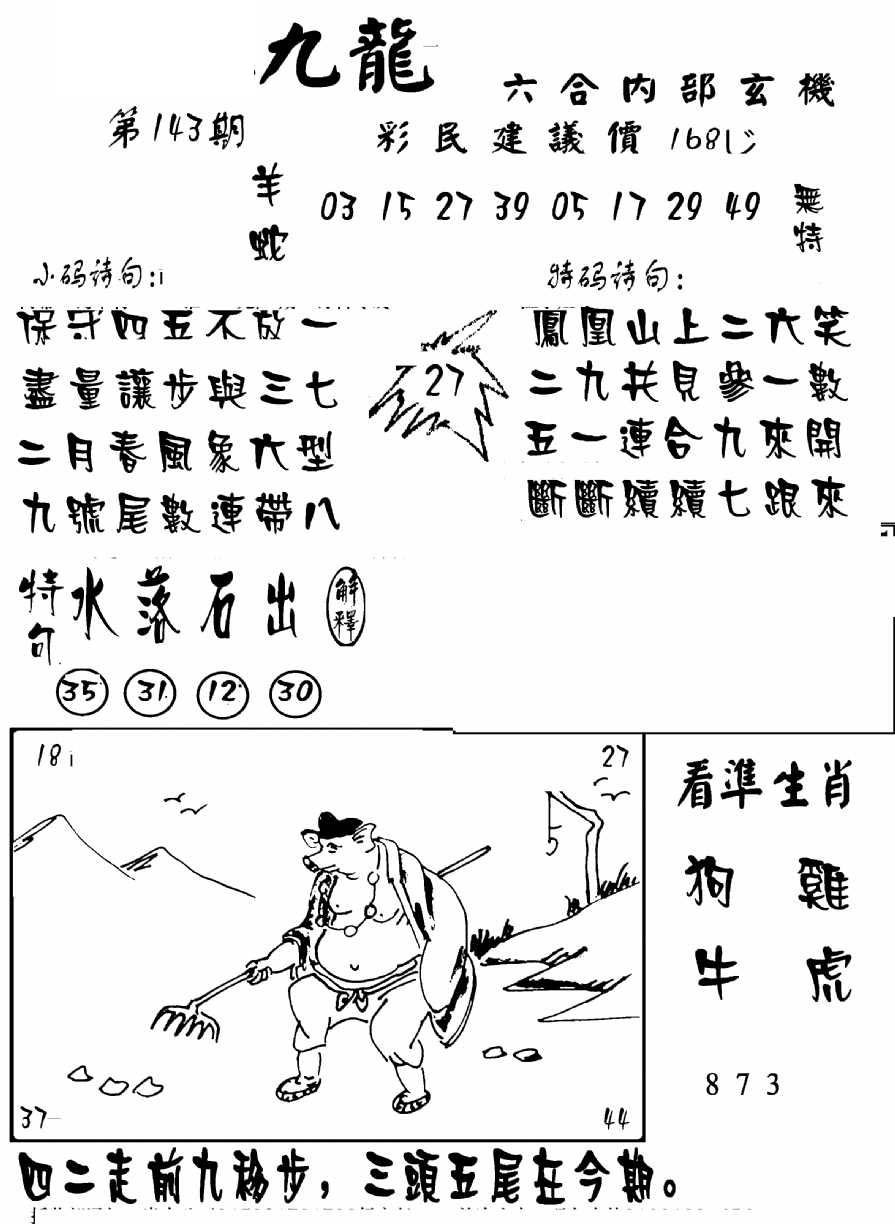 九龍
六合内部玄機
第143期
彩民建議價168
羊 03 15 27 39 05 17 29 49 無
蛇 特
小码诗句:
特码诗句:
保守四五不放一
盡量讓步與三七
二月春風象六型
九號尾數連帶八
27
鳳凰山上二六笑
二九共見參一數
五一連合九來開
斷斷續續七跟來
特句 水落石出 解釋
35 31 12 30
18 27
5
37 44
看準生肖
狗 雞
牛 虎
8 7 3
四二走前九移步，三頭五尾在今期。